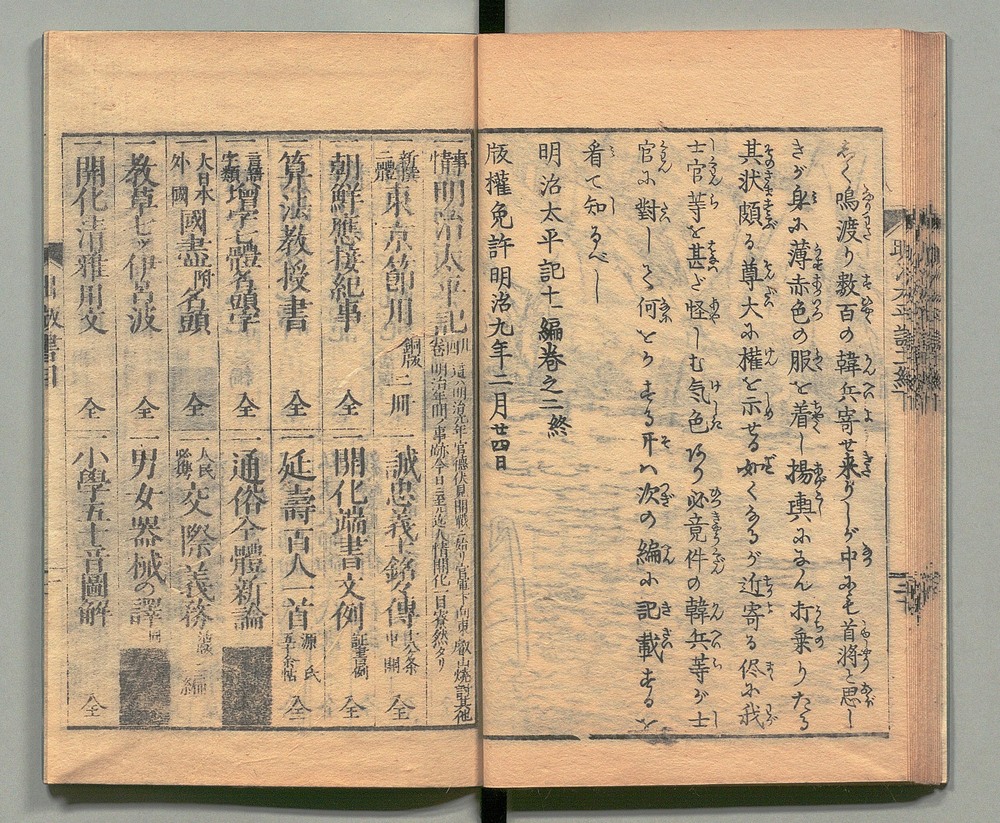 しく鳴渡り数百の韓兵寄せ来りしが中にも首將と思し
きが身に薄赤色の服を着し揚輿になん打乗りたる
其状頗る尊大に權を示せる如くなるが近寄る侭に我
士官等を甚ど怪しむ気色あり必竟件の韓兵等が士
官に對して何とかする开ハ次の編に記載するを
看て知るべし
明治太平記十一編巻之二終
版權免許明治九年二月廿四日
事情明治太平記
新撰二體東京節用 銅版 二冊
朝鮮應接紀事 全
算法教授書 全
言語字類増字七體名頭字 全
大日本外國國盡附名頭 全
一教草七ッ伊呂波 全
一開化清雅用文 全
一誠忠義士銘々傳
一開化端書文例 証書届例 全
一延壽百人一首 源氏五十余帖 全
一通俗全體新論
人民必携交際義務 編
一男女器械の譯
一小學五十音圖解 全